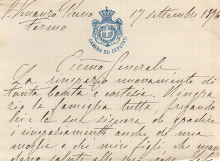 S. Venanzo
17 settembre 189
Fermo
CAMERA DEI DEPUTATI
Esimo Generale
La ringrazio nuovamente di
tanta bontà e cortesia. Ringra
zio la famiglia tutta, pregando
lei e la sua signora de gradire
i ringraziamenti anche di mia
moglie e dei miei figli, che